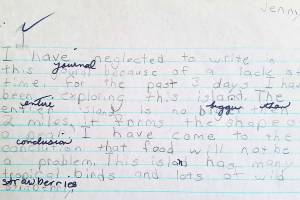 Jenni
I have neglected to write in
journal
this because of a lack of
time. for the past 3 days I have
been exploring this island. The
entire bigger than
island is no
2 miles, it forms the shape of
a I have come to the
conclusion
that food will not be
a problem. This island has many
tropical birds and lots of wild
strawberries